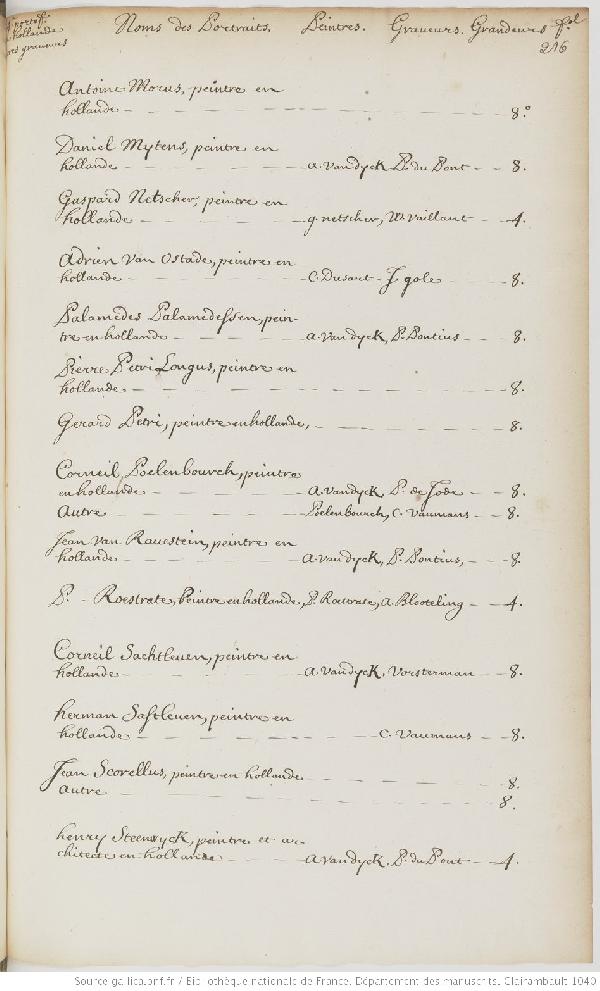 hollande
graveurs
Noms des Portraits. Peintres. Graveurs. Grandeurs fol.
216
Antoine Morus, peintre en
hollande 8.º
Daniel Mytens, peintre en
hollande A. vandyck P. du Pont 8.
Gaspard Netscher, peintre en
hollande g. netscher, W. vaillant 4.
Adrien van Ostade, peintre en
hollande C. Dusart J gole 8.
Palamedes Palamedessen, pein-
tre en hollande A. vandyck, P. Pontius 8.
Pierre Petri Longus, peintre en
hollande 8.
Gerard Petri, peintre en hollande, 8.
Corneil Poelenbourch, peintre
en hollande A. vandyck, P. de Jode 8.
Autre Poelenbourch, C. Vaumans 8.
Jean van Ravestein, peintre en
hollande A. vandyck, P. Pontius, 8.
P. Roestrate, Peintre en hollande, P. Roestrate, A. Blooteling 4.
Corneil Sachtleven, peintre en
hollande A. vandyck, Vorsterman 8.
herman Saftleven, peintre en
hollande C. Vaumans 8.
Jean Scorellus, peintre en hollande 8.
Autre 8.
henry Steenwyck, peintre et ar-
chitecte en hollande A vandyck, P. du Pont 4.
Source gallica.bnf.fr / Bibliothèque nationale de France. Département des manuscrits. Clairambault 1040